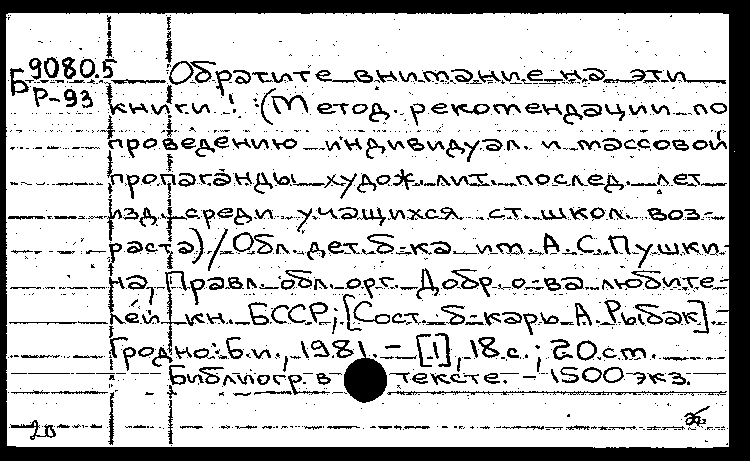 Б 9080.5 Обратите внимание на эти
Р-93 книги! : (Метод. рекомендации по
проведению индивидуал. и массовой
пропаганды худож. лит. послед. лет
изд. среди учащихся ст. школ. воз-
раста) / Обл. дет. б-ка им. А.С.Пушки-
на, Правл. обл. орг. Добр. о-ва любите-
лей кн. БССР; [Сост. б-карь А.Рыбак]. -
Гродно: Б.и., 1981. - [1], 18 с.; 20 см.
Библиогр. в тексте. - 1500 экз.